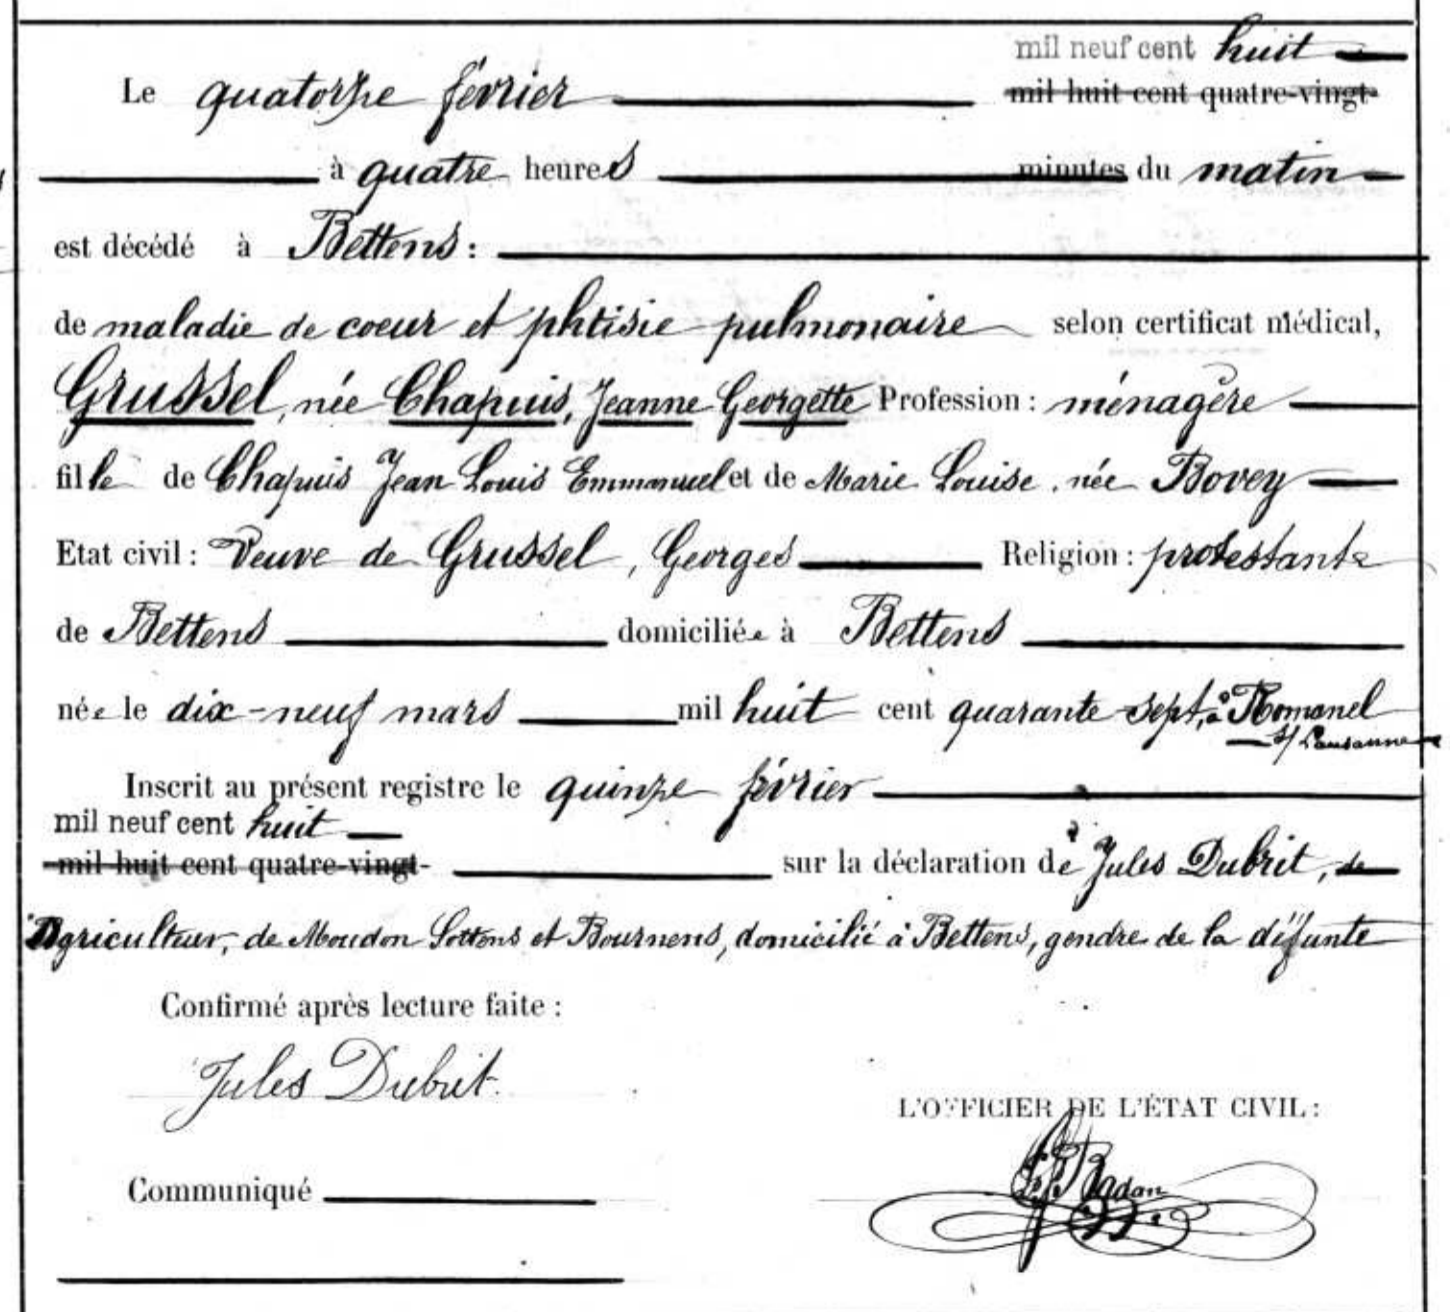 mil neuf cent huit
Le quatorze février mil huit cent quatre-vingt-
à quatre heures minutes du matin
est décédé à Bettens :
de maladie de coeur et phtisie pulmonaire selon certificat médical,
Grussel, née Chapuis, Jeanne Georgette Profession : ménagère
fille de Chapuis Jean Louis Emmanuel et de Marie Louise, née Bovey
Etat civil : Veuve de Grussel, Georges Religion : protestante
de Bettens domiciliée à Bettens
née le dix-neuf mars mil huit cent quarante-sept, à Romanel
s/ Lausanne
Inscrit au présent registre le quinze février
mil neuf cent huit
mil huit cent quatre-vingt- sur la déclaration de Jules Dubrit, de
Agriculteur, de Moudon Sottens et Bournens, domicilié à Bettens, gendre de la défunte
Confirmé après lecture faite :
Jules Dubrit
L'OFFICIER DE L'ÉTAT CIVIL :
Badan
Communiqué